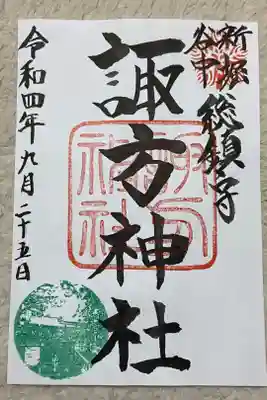 新堀
谷中
総鎮守
諏方神社
令和四年九月二十五日
諏方
神社